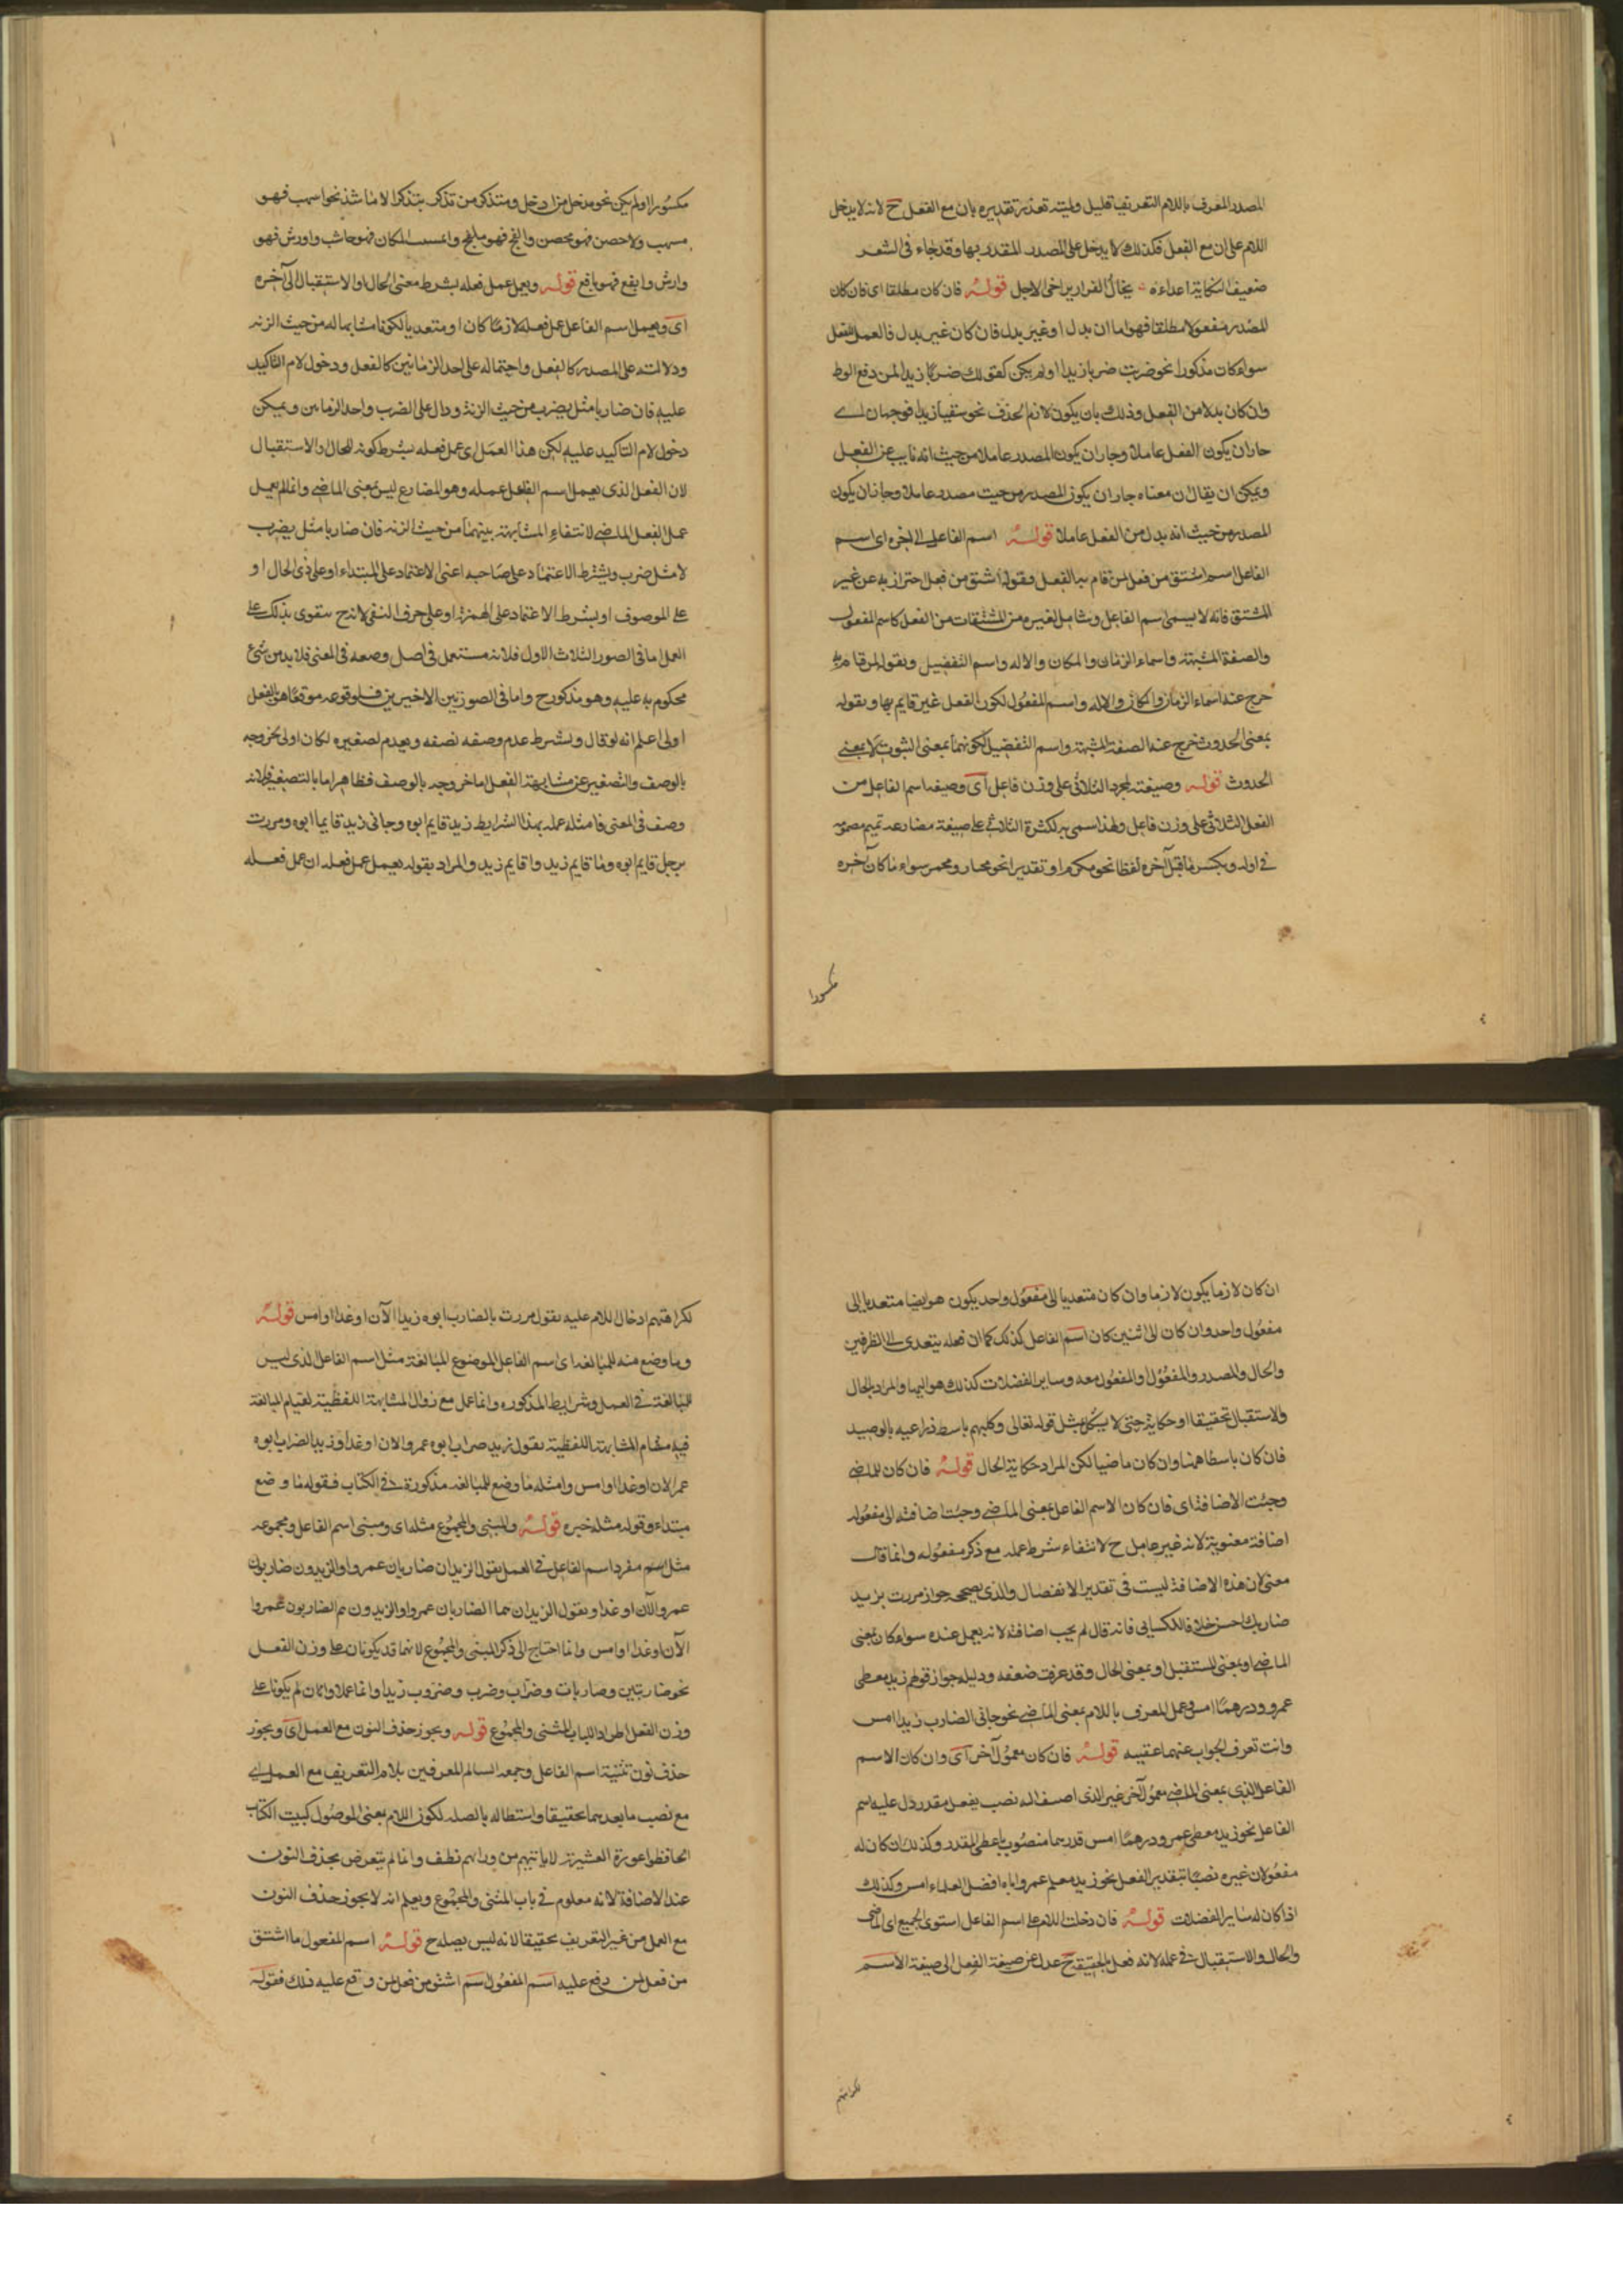 المصدر المعرف باللام التعريف قليل وليته تعذر تقديره بان مع الفعل ح لانه لا يدخل
اللام على ان مع الفعل فكذلك لا يدخل على المصدر المقدر بها وقد جاء فى الشعر
ضعيف النكاية اعداءه يخال الفرار يراخى الاجل قوله فان كان مطلقا اى فان كان
المصدر مفعولا مطلقا فهو اما ان بدل او غير بدل فان كان غير بدل فالعمل للفعل
سواء كان مذكورا نحو ضربت ضربا زيدا او لم يكن كقولك ضربا زيدا لمن رفع السوط
وان كان بدلا من الفعل وذلك بان يكون لازم الحذف نحو سقيا زيدا فوجهان اى
جاز ان يكون الفعل عاملا وجاز ان يكون المصدر عاملا من حيث انه نايب عن الفعل
ويمكن ان يقال ان معناه جاز ان يكون المصدر من حيث مصدر عاملا وجاز ان يكون
المصدر من حيث انه بدل من الفعل عاملا قوله اسم الفاعل الى اخره اى اسم
الفاعل اسم اشتق من فعل لمن قام به الفعل وقوله اشتق من فعل احتراز به عن غير
المشتق فانه لا يسمى اسم الفاعل وشامل لغيره من المشتقات من الفعل كاسم المفعول
والصفة المشبهة واسماء الزمان والمكان والاله واسم التفضيل وبقوله لمن قام به
خرج عنه اسماء الزمان والمكان والاله واسم المفعول لكون الفعل غير قايم بها وبقوله
بمعنى الحدوث خرج عنه الصفة المشبهة واسم التفضيل لكونهما بمعنى الثبوت لا بمعنى
الحدوث قوله وصيغته لمجرد الثلاثى على وزن فاعل اى وصيغة اسم الفاعل من
الفعل الثلاثى على وزن فاعل ولهذا سمى به لكثرة الثلاثى على صيغة مضارعه بميم مضمومة
فى اوله وبكسر ما قبل آخره لفظا نحو مكرم او تقديرا نحو محار ومحمر سواء ما كان آخره
مكسورا
مكسورا او لم يكن نحو مدخل من ادخل ومتذكر من تذكر يتذكر الا ما شذ نحو اسهب فهو
مسهب ولاحصن فهو محصن والفج فهو ملفج واعشب المكان فهو عاشب واورش فهو
وارش وايفع فهو يافع قوله ويعمل عمل فعله بشرط معنى الحال او الاستقبال الى آخره
اى ويعمل اسم الفاعل عمل فعله لازما كان او متعديا لكونه مشابها له من حيث الزنه
ودلالته على المصدر كالفعل واحتماله على احد الزمانين كالفعل ودخول لام التاكيد
عليه فان ضاربا مثل يضرب من حيث الزنة ودال على الضرب واحد الزمانين ويمكن
دخول لام التاكيد عليه لكن هذا العمل اى عمل فعله بشرط كونه للحال والاستقبال
لان الفعل الذى يعمل اسم الفاعل عمله وهو المضارع ليس بمعنى الماضى وانما لم يعمل
عمل الفعل الماضى لانتفاء المشابهة بينهما من حيث الزنه فان ضاربا مثل يضرب
لا مثل ضرب ويشترط الاعتماد على صاحبه اعنى الاعتماد على المبتداء او على ذى الحال او
على الموصوف او بشرط الاعتماد على الهمزة او على حرف النفى لانه ح يتقوى بذلك على
العمل اما فى الصور الثلاث الاول فلانه مستعمل فى اصل وضعه فى المعنى فلا بد من شىء
محكوم به عليه وهو مذكور ح واما فى الصورتين الاخيرين فلوقوعه موقعا هو بالفعل
اولى اعلم انه لو قال ويشترط عدم وصفه وعدم تصغيره لكان اولى لخروجه
بالوصف والتصغير عن مشابهة الفعل اما خروجه بالوصف فظاهر اما بالتصغير فلانه
وصف فى المعنى فامثلة عمله بهذا الشرايط زيد قايم ابوه وجانى زيد قايما ابوه ومررت
برجل قايم ابوه وما قايم زيد واقايم زيد والمراد بقوله يعمل عمل فعله ان عمل فعله
ان كان لازما يكون لازما وان كان متعديا الى مفعول واحد يكون هو ايضا متعديا الى
مفعول واحد وان كان الى اثنين كان اسم الفاعل كذلك كما ان فعله يتعدى الى الظرفين
والحال والمصدر والمفعول له والمفعول معه وساير الفضلات كذلك هو اليها والمراد بالحال
والاستقبال تحقيقا او حكاية حتى لا يشكل بمثل قوله تعالى وكلبهم باسط ذراعيه بالوصيد
فان كان باسط ههنا وان كان ماضيا لكن المراد حكاية الحال قوله فان كان للماضى
وجبت الاضافة اى فان كان الاسم الفاعل بمعنى الماضى وجبت اضافته الى مفعوله
اضافة معنوية لانه غير عامل ح لانتفاء شرط عمله مع ذكر مفعوله وانما قال
معنى لان هذه الاضافة ليست فى تقدير الانفصال والذى يصححه جواز مررت بزيد
ضاربك احسن خلافا للكسايى فانه قال لم يجب اضافته لانه يعمل عنده سواء كان بمعنى
الماضى او بمعنى المستقبل او بمعنى الحال وقد عرفت ضعفه ودليله جواز قولهم زيد معطى
عمرو درهما امس وعمل المعرف باللام بمعنى الماضى نحو جانى الضارب زيدا امس
وانت تعرف الجواب عنهما عقيبه قوله فان كان معمول آخر اى وان كان لاسم
الفاعل الذى بمعنى الماضى معمول آخر غير الذى اضيف اليه نصب بفعل مقدر دل عليه اسم
الفاعل نحو زيد معطى عمرو درهما امس فدرهما منصوب باعطى المقدر وكذلك ان كان له
مفعولان غيره نصبا بتقدير الفعل نحو زيد معلم عمرو اباه افضل العلماء امس وكذلك
اذا كان له ساير الفضلات قوله فان دخلت اللام على اسم الفاعل استوى الجميع اى الماضى
والحال والاستقبال فى عمله لانه فعل فى الحقيقة ح عدل عن صيغة الفعل الى صيغة الاسم
لكراهتهم
لكراهتهم ادخال اللام عليه تقول مررت بالضارب ابوه زيدا الآن او غدا او امس قوله
وما وضع منه للمبالغة اى اسم الفاعل الموضوع للمبالغة مثل اسم الفاعل الذى ليس
للمبالغة فى العمل وشرايط المذكوره وانما عمل مع زوال المشابهة اللفظية لقيام المبالغة
فيه مقام المشابهة اللفظية تقول زيد ضراب ابوه عمروا الان او غدا وزيد الضراب ابوه
عمرا الان او غدا او امس وامثلة ما وضع للمبالغه مذكورة فى الكتاب فقوله ما وضع
مبتداء وقوله مثله خبره قوله والمبنى والمجموع مثله اى ومبنى اسم الفاعل ومجموعه
مثل اسم مفرد اسم الفاعل فى العمل تقول الزيدان ضاربان عمروا والزيدون ضاربون
عمروا الآن او غدا وتقول الزيدان هما الضاربان عمروا والزيدون هم الضاربون عمروا
الآن او غدا او امس وانما احتاج الى ذكر المبنى والمجموع لانهما قد يكونان على وزن الفعل
نحو ضاربتين وضاربات وضراب وضرب وضروب زيدا وانما عملا وان لم يكونا على
وزن الفعل اطرادا للباب المثنى والمجموع قوله ويجوز حذف النون مع العمل اى ويجوز
حذف نون تثنية اسم الفاعل وجمعه السالم المعرفين بلام التعريف مع العمل اى
مع نصب ما بعدهما تحقيقا واستطاله بالصله لكون اللام بمعنى الموصول كبيت الكتاب
الحافظوا عورة العشيرة لا ياتيهم من ورائهم نطف وانما لم يتعرض بحذف النون
عند الاضافة لانه معلوم فى باب المثنى والمجموع ويعلم انه لا يجوز حذف النون
مع العمل من غير التعريف تحقيقا لانه ليس بصله ح قوله اسم المفعول ما اشتق
من فعل لمن وقع عليه اسم المفعول اسم اشتق من فعل لمن وقع عليه ذلك فقوله